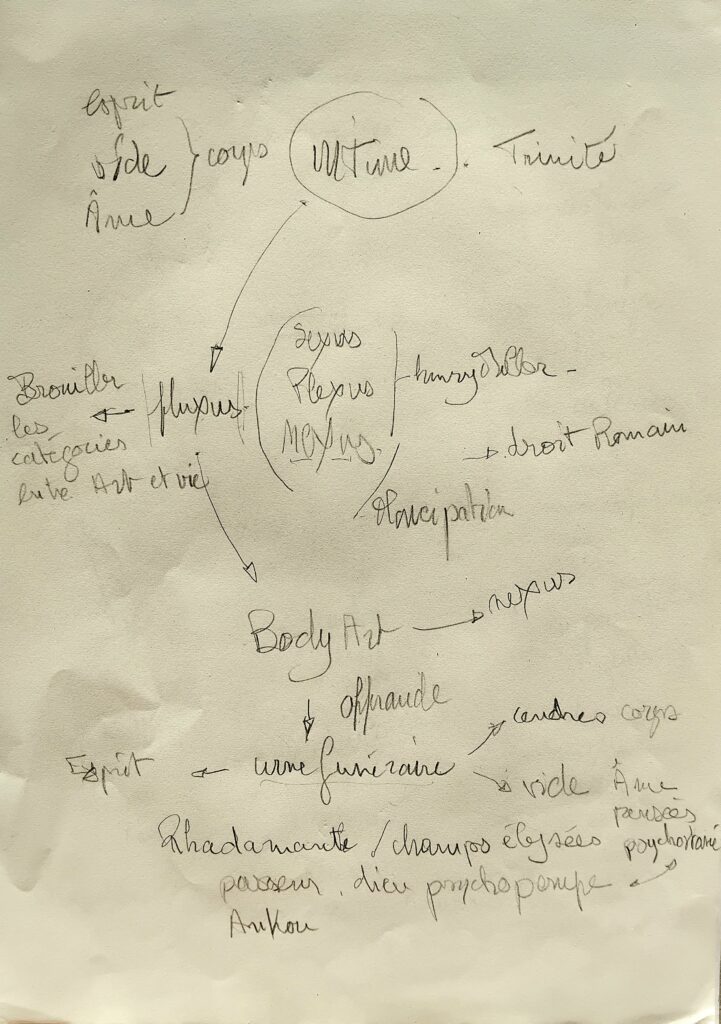 esprit
vide
Âme
corps
intime. Trinité
Sexus
Plexus
Nexus.
henry Miller -
Brouiller
les
catégories
entre Art et vie
fluxus.
droit Romain
Mancipation
Body Art
nexus
offrande
urne funéraire
cendres corps
Esprit
vide Âme
pensées
Rhadamante / champs élysées
passeur, dieu psychopompe
Ankou